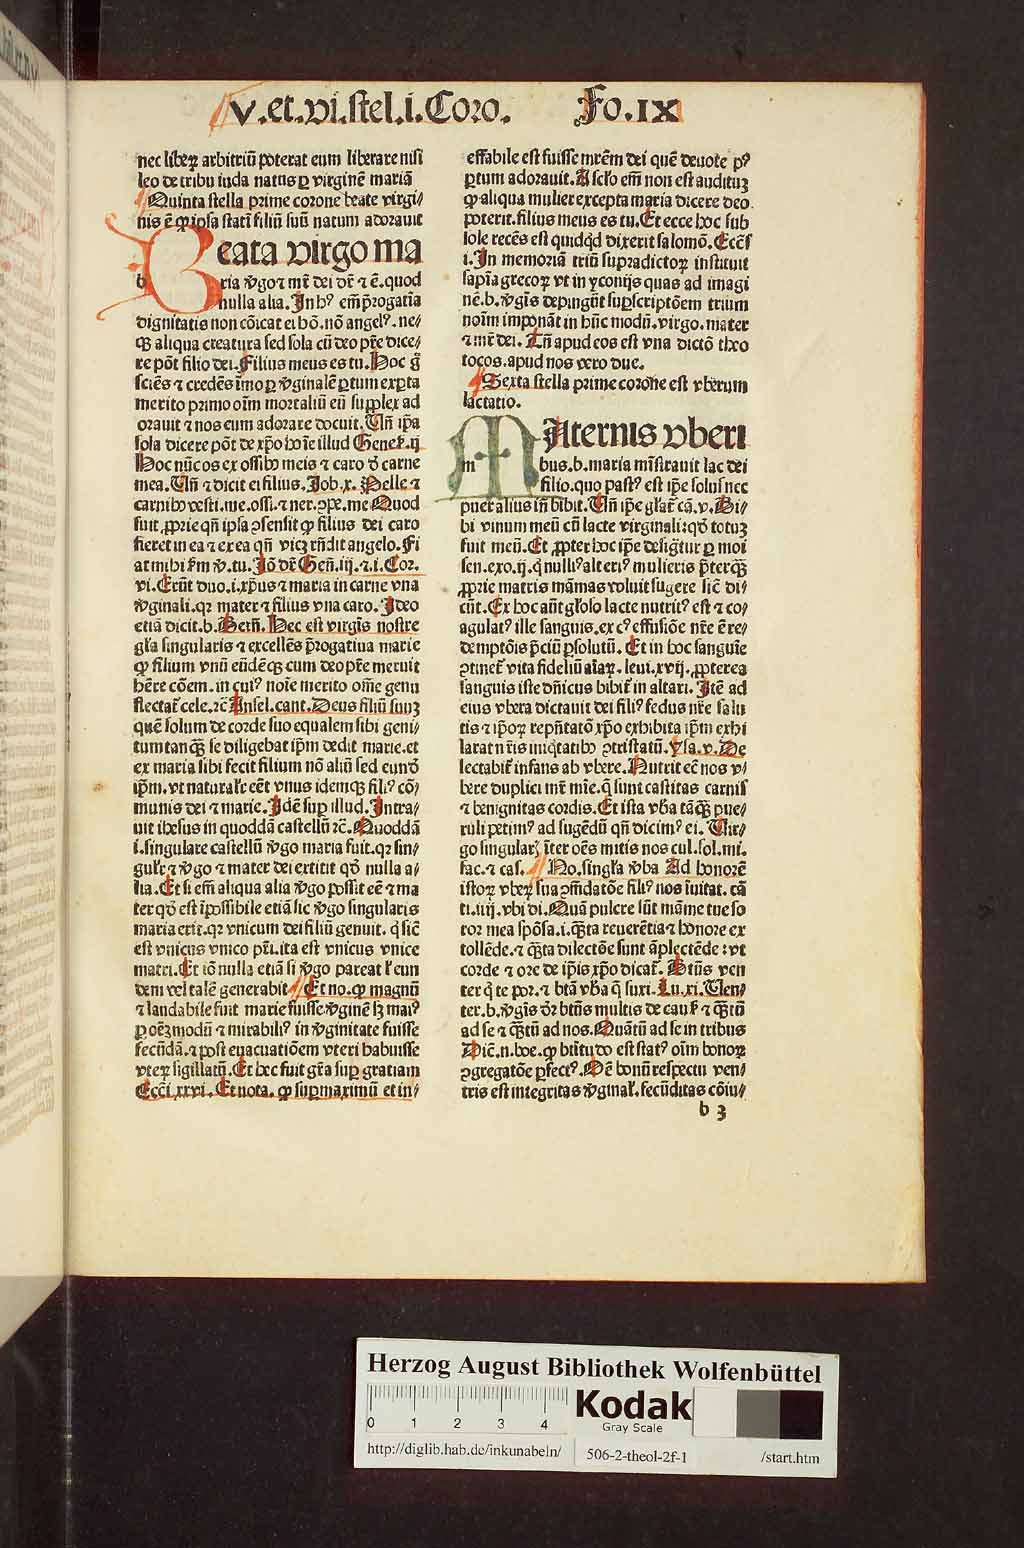 V.et.vi.stel.i.Coro. Fo.IX
nec liberꝝ arbitriū poterat eum liberare nisi
leo de tribu iuda natus ꝑ virginē mariā
¶ Quinta stella prime corone beate virgi⸗
nis ē ꝙ ipsa statī filiū suū natum adorauit
Beata virgo ma
ria ṽgo ⁊ mr̄ dei dr̄ ⁊ ē. quod
nulla alia. In hꝰ em̄ p̄rogatīa
dignitatis non cōicat ei hō. nō angelꝰ. ne⸗
qꝫ aliqua creatura sed sola cū deo pr̄e dice⸗
re pōt filio dei. Filius meus es tu. Hoc g̊
sciēs ⁊ credēs īmo ꝑ ṽginalē ꝑtum exꝑta
merito primo oīm mortaliū eū supplex ad
orauit ⁊ nos eum adorare docuit. Vn̄ ip̄a
sola dicere pōt de xp̄o hoīe illud Geneſ. ij
Hoc nūc os ex ossibꝰ meis ⁊ caro d̓ carne
mea. Vn̄ ⁊ dicit ei filius. Job. x. Pelle ⁊
carnibꝰ vesti. me. ossi. ⁊ ner. ꝯpe. me Quod
fuit ꝓprie qn̄ ipsa ꝯsensit ꝙ filius dei caro
fieret in ea ⁊ ex ea qn̄ vicꝫ rn̄dit angelo. Fi
at mihi ẜm ṽ. tu. Iō dr̄ Gen̄. iij. ⁊. i. Cor.
vi. Erūt duo. i. xp̄us ⁊ maria in carne vna
ṽginali. qꝛ mater ⁊ filius vna caro. Ideo
etiā dicit. b. Bern̄. Hec est virgīs nostre
gl̄a singularis ⁊ excellēs p̄rogatiua marie
ꝙ filium vnū eūdēqꝫ cum deo pr̄e meruit
hēre cōem. in cuiꝰ noīe merito om̄e genu
flectat̄ cele. ⁊c̄ Ansel. cant. Deus filiū suuꝫ
quē solum de corde suo equalem sibi geni⸗
tum tanqꝫ se diligebat ip̄m dedit marie. et
ex maria sibi fecit filium nō aliū sed eund̓
ip̄m. vt naturalr̄ eēt vnus idemqꝫ filiꝰ cō⸗
munis dei ⁊ marie. Idē suꝑ illud. Intra⸗
uit ihesus in quoddā castellū ⁊c̄. Quoddā
i. singulare castellū ṽgo maria fuit. qꝛ sin⸗
gulr̄ ⁊ ṽgo ⁊ mater dei extitit qd̓ nulla a⸗
lia. Et si em̄ aliqua alia ṽgo possit eē ⁊ ma
ter qd̓ est īpossibile etiā sic ṽgo singularis
maria erit. qꝛ vnicum dei filiū genuit. q̇ sic̄
est vnicus vnico pr̄i. ita est vnicus vnice
matri. Et iō nulla etiā si ṽgo pareat ł eun
dem vel talē generabit ¶ Et no. ꝙ magnū
⁊ laudabile fuit marie fuisse ṽginē sꝫ maiꝰ
ꝑ oēꝫ modū ⁊ mirabiliꝰ in ṽginitate fuisse
fecūdā. ⁊ post euacuatiōem vteri habuisse
vteꝝ sigillatū. Et hec fuit gr̄a suꝑ gratiam
Ecc̄i. xxvi. Et nota. ꝙ suꝑmaximū et in⸗
effabile est fuisse mr̄em dei quē deuote pꝰ
ꝑtum adorauit. A scl̄o em̄ non est audituꝫ
ꝙ aliqua mulier excepta maria dicere deo
poterit. filius meus es tu. Et ecce hoc sub
sole recēs est quidqd̓ dixerit salomō. Ecēs
i. In memoriā triū supradictoꝝ instituit
sapīa grecoꝝ vt in yconijs quas ad imagi
nē. b. ṽgīs depingūt suꝑscriptōem trium
noīm imponāt in hūc modū. virgo. mater
⁊ mr̄ dei. Tn̄ apud eos est vna dictō theo
tocos. apud nos vero due.
¶ Sexta stella prime corōne est vberum
lactatio.
MAternis vberi
bus. b. maria mīstrauit lac dei
filio. quo pastꝰ est ip̄e solus nec
puer alius īn bibit. Vn̄ ip̄e glat̄ cā. v. Bi⸗
bi vinum meū cū lacte virginali: qd̓ totuꝫ
fuit meū. Et ꝓpter hoc ip̄e design̄tur ꝑ moi
sen. exo. ij. q̇ nulliꝰ alteriꝰ mulieris p̄terqꝫ
ꝓprie matris māmas voluit sugere sic̄ di⸗
cūt. Ex hoc aūt gl̄olo lacte nutritꝰ est ⁊ co⸗
agulatꝰ ille sanguis. ex cꝰ effusiōe nr̄e ē re⸗
demptōis p̄ciū ꝑsolutū. Et in hoc sanguīe
ꝯtinet̄ vita fideliū aīaꝝ. leui. xvij. ꝓpterea
sanguis iste dn̄icus bibit̄ in altari. Itē ad
eius vbera dictauit dei filiꝰ fedus nr̄e salu
tis ⁊ ip̄oꝝ repn̄tatō xp̄o exhibita ip̄m exhi
larat nr̄is iniq̇tatibꝰ ꝯtristatū. Ysa. v. De
lectabit̄ infans ab vbere. Nutrit ec̄ nos v⸗
bere duplici mr̄ mīe. q̄ sunt castitas carnis
⁊ benignitas cordis. Et ista vb̓a tāqꝫ pue⸗
ruli petimꝰ ad sugēdū qn̄ dicimꝰ ei. Vir⸗
go singularꝭ īter oēs mitis nos cul. sol. mi.
fac. ⁊ cas. ¶ No. singl̄a ṽba Ad honorē
istoꝝ vbeꝝ sua ꝯm̄datōe filiꝰ nos īuitat. cā
ti. iiij. vbi di. Quā pulcre sūt māme tue so
ror mea spōsa. i. qꝫta reuerētia ⁊ honore ex
tollēde. ⁊ qꝫta dilectōe sunt āplectēde: vt
corde ⁊ ore de ip̄is xp̄o dicat̄. Btūs ven
ter q̇ te por. ⁊ btā vb̓a q̄ suxi. Lu. xi. Ven⸗
ter. b. ṽgīs dr̄ btūs multis de cauſ ⁊ qꝫtū
ad se ⁊ qꝫtū ad nos. Quātū ad se in tribus
Dic̄. n. boe. ꝙ btītudo est statꝰ oīm bonoꝝ
ꝯgregatōe ꝑfectꝰ. Dē bonū respectu ven⸗
tris est integritas ṽginal̄. fecūditas cōiu⸗
b 3
Herzog August Bibliothek Wolfenbüttel
0 1 2 3 4
Kodak
Gray Scale
http://diglib.hab.de/inkunabeln/ 506-2-theol-2f-1 /start.htm